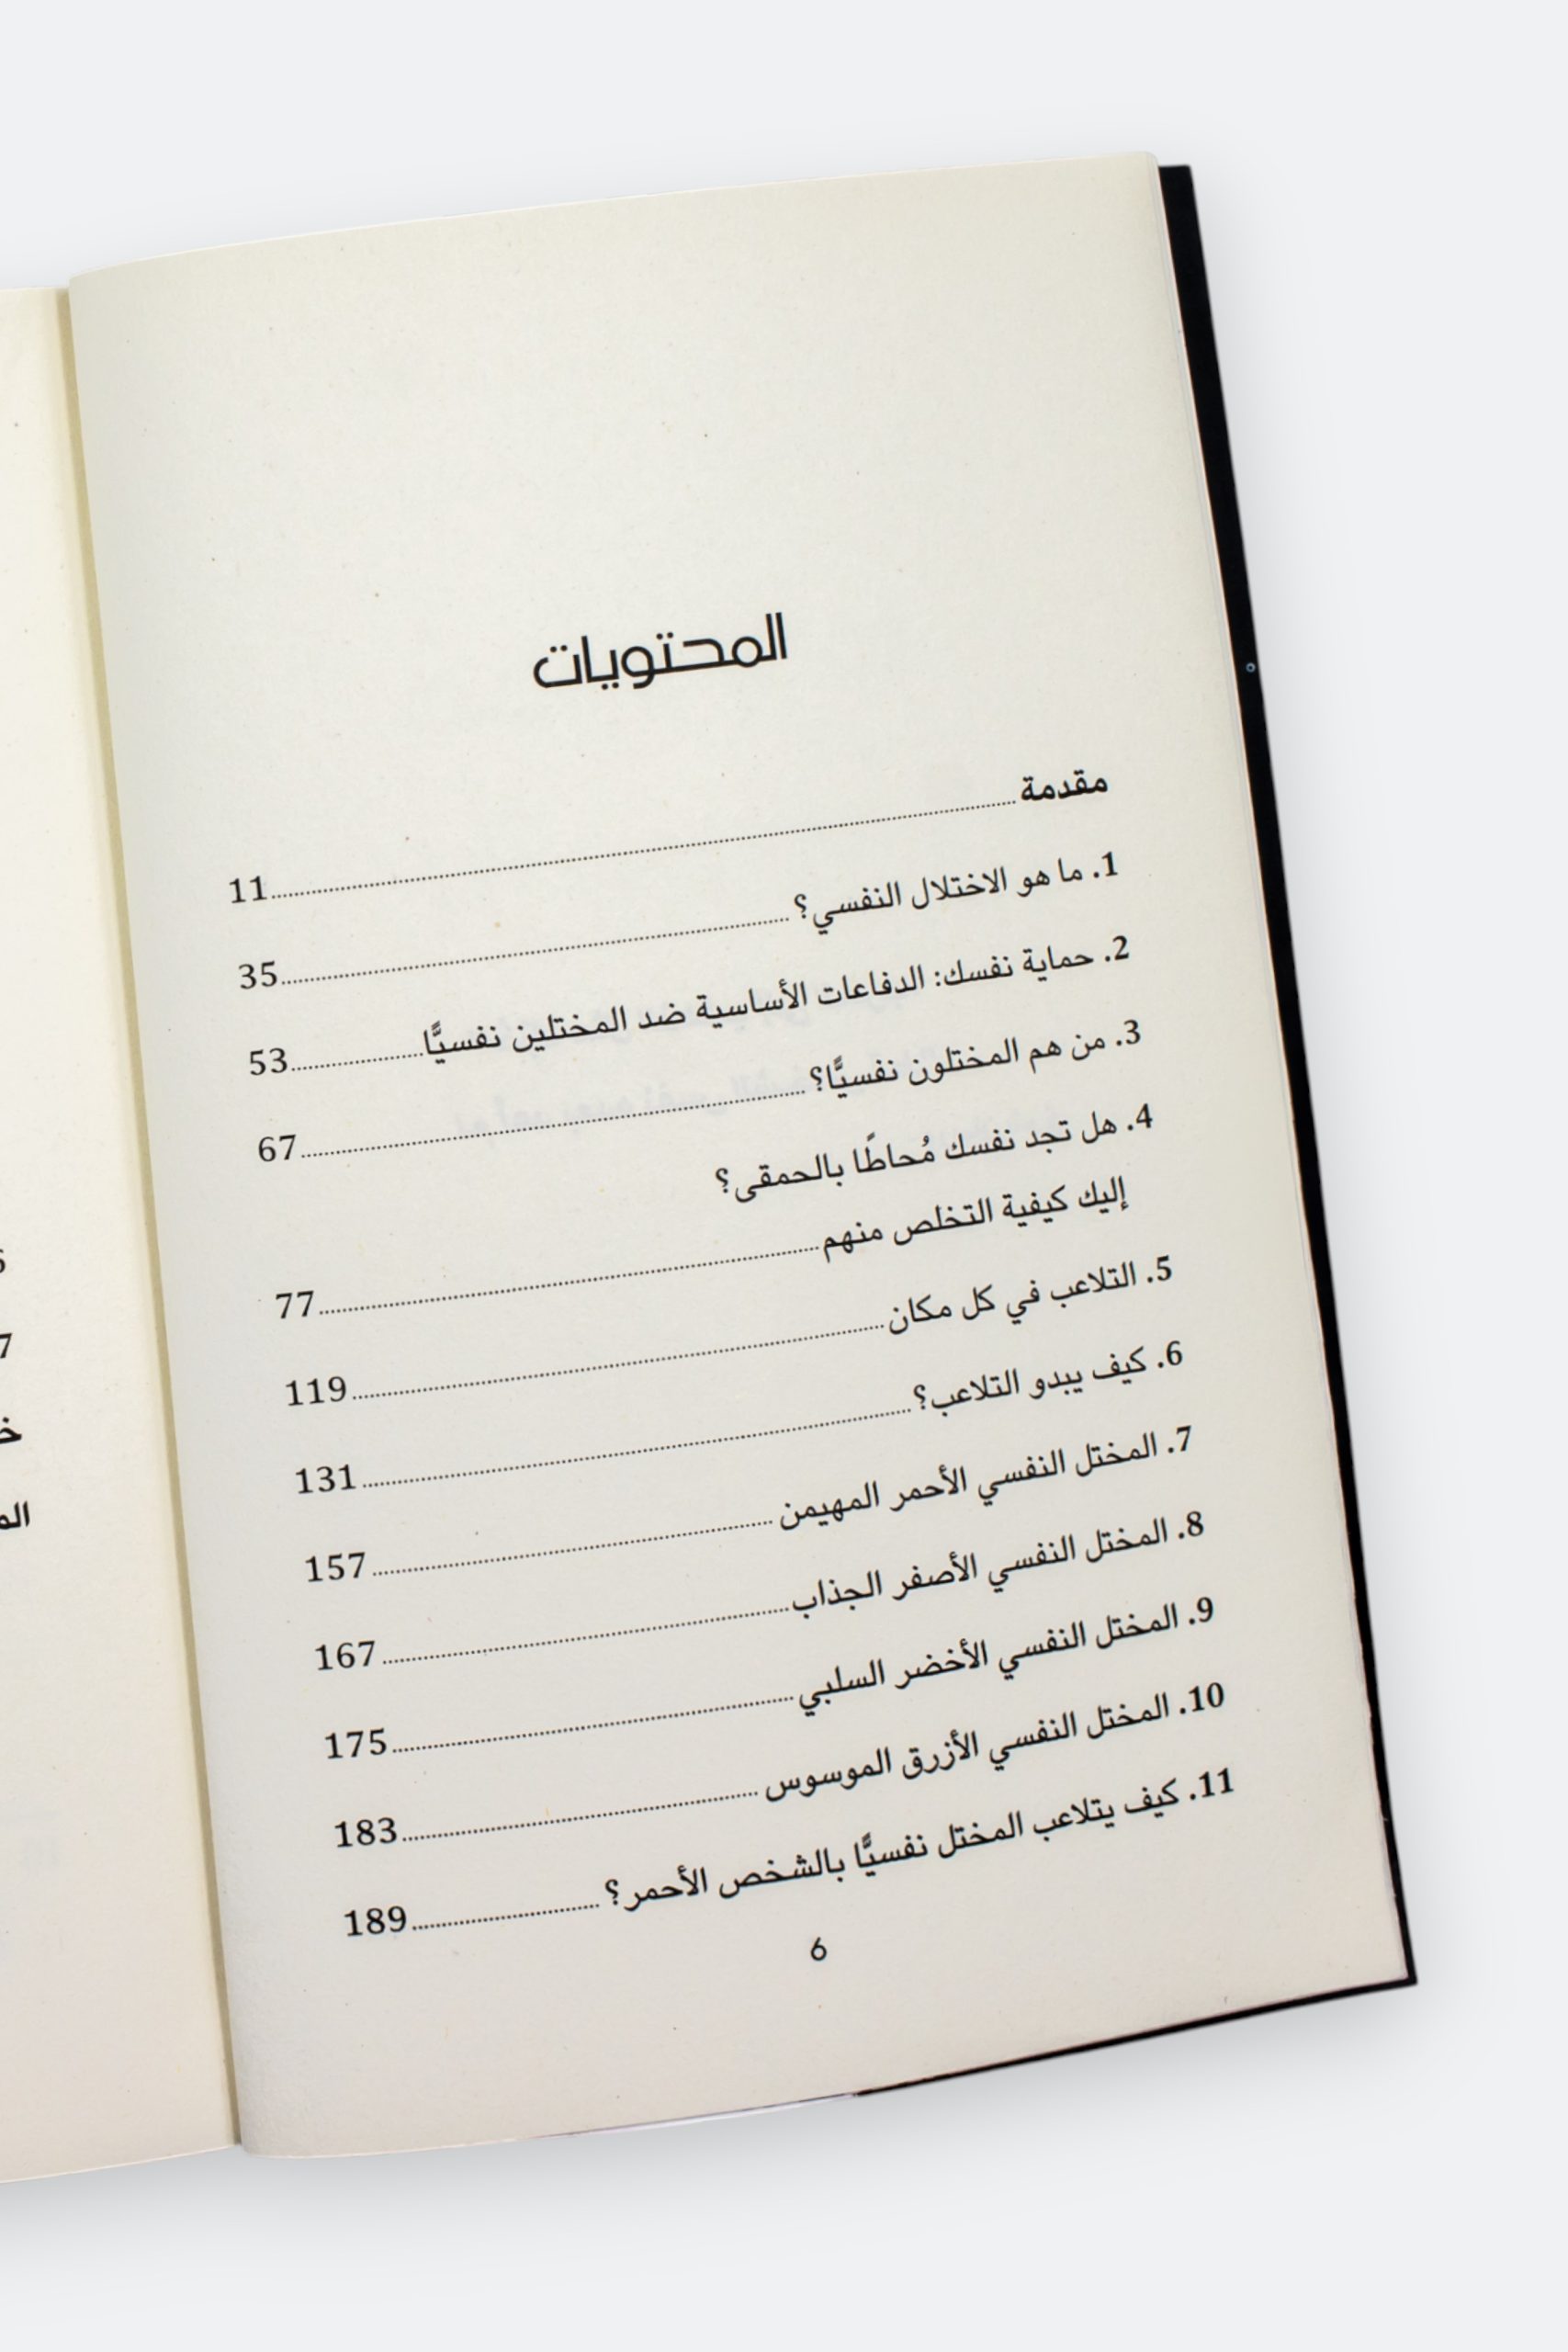 المحتويات
مقدمة 11
1. ما هو الاختلال النفسي؟ 35
2. حماية نفسك: الدفاعات الأساسية ضد المختلين نفسيًّا 53
3. من هم المختلون نفسيًّا؟ 67
4. هل تجد نفسك مُحاطًا بالحمقى؟
إليك كيفية التخلص منهم 77
5. التلاعب في كل مكان 119
6. كيف يبدو التلاعب؟ 131
7. المختل النفسي الأحمر المهيمن 157
8. المختل النفسي الأصفر الجذاب 167
9. المختل النفسي الأخضر السلبي 175
10. المختل النفسي الأزرق الموسوس 183
11. كيف يتلاعب المختل نفسيًّا بالشخص الأحمر؟ 189
6